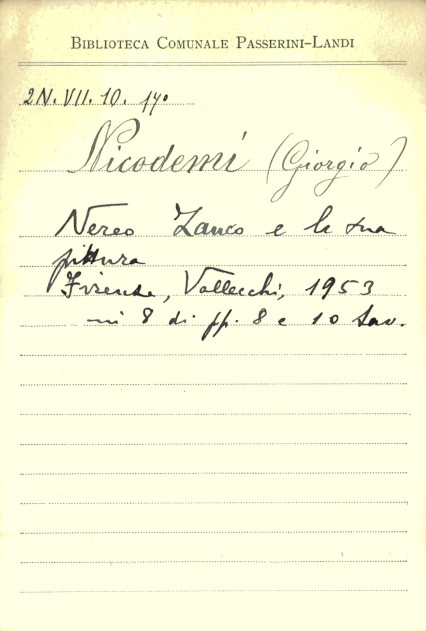 BIBLIOTECA COMUNALE PASSERINI-LANDI
2N. VII. 10. 17º
Nicodemi (Giorgio)
Nereo Zanco e la sua
pittura
Firenze, Vallecchi, 1953
in 8 di pp. 8 e 10 tav.